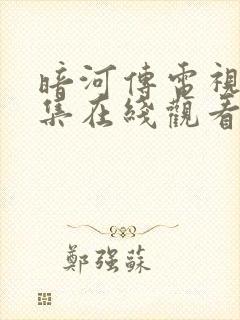 暗河傳電視
集在綫觀看
鄭強蘇